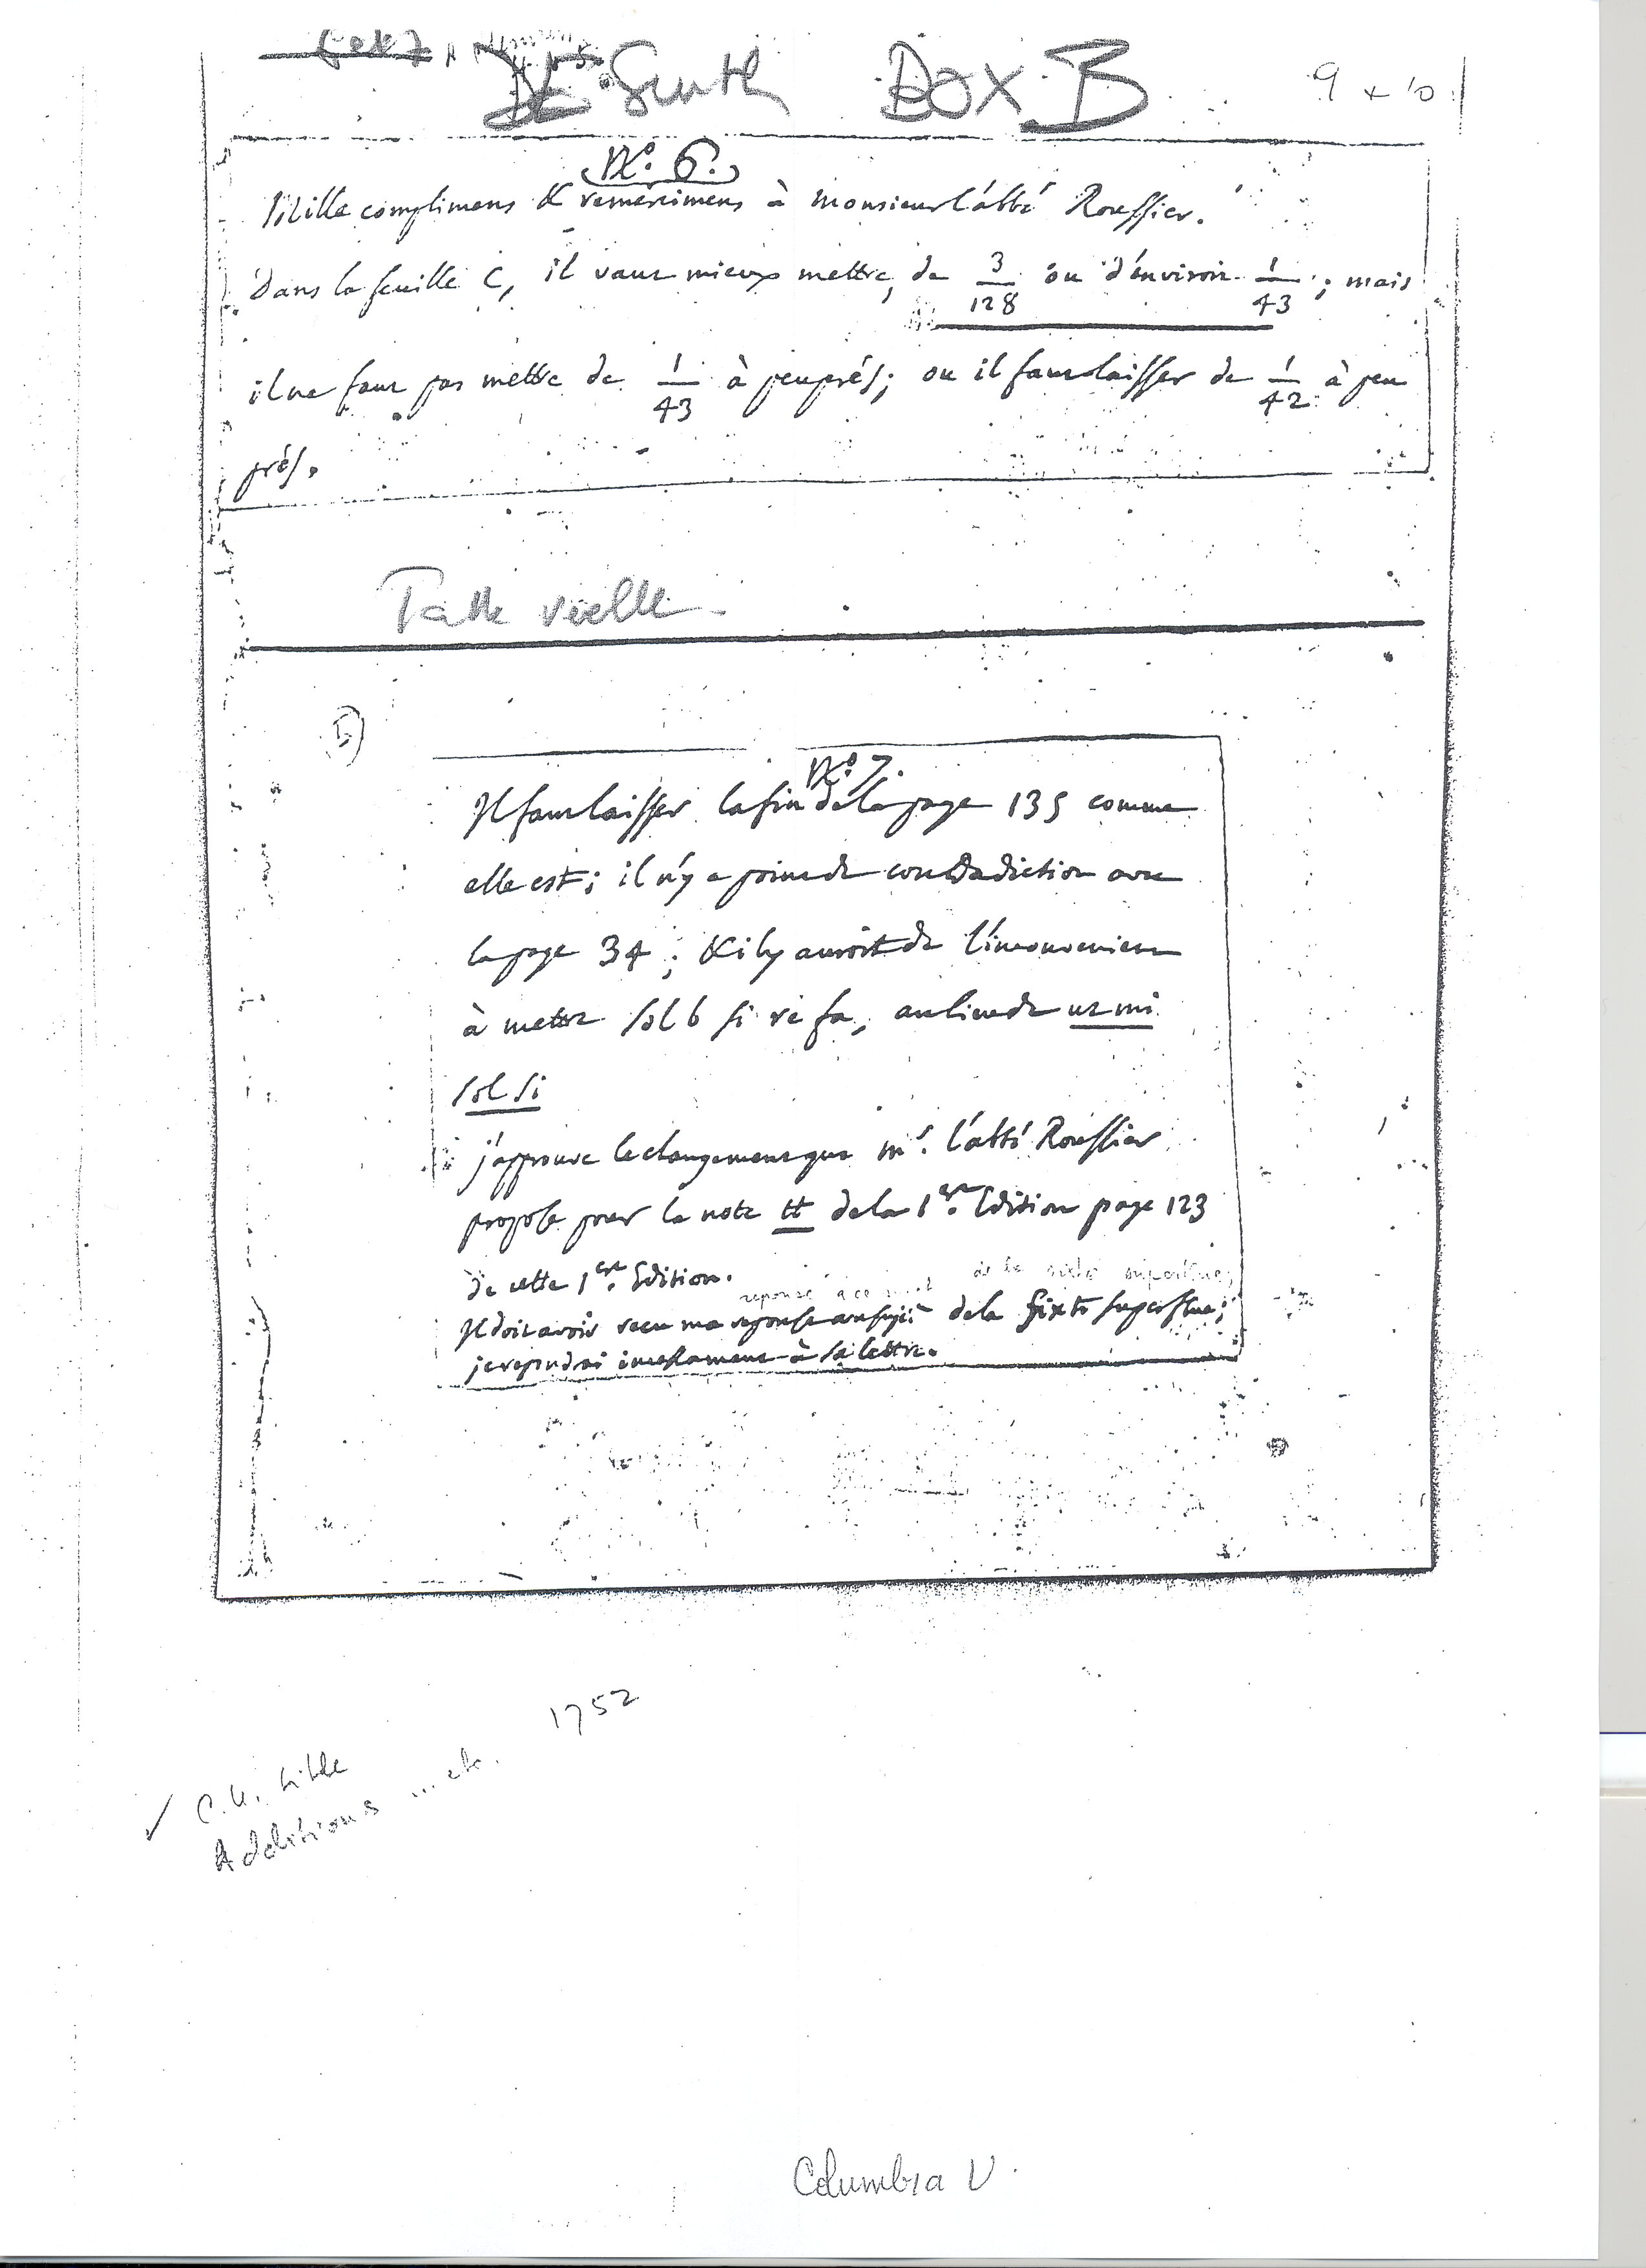 6 et 7
DE Smith BOX B 9 x 10
N.º 6.
Mille complimens & remercimens à monsieur l'abbé Roussier.
Dans la feuille C, il vaut mieux mettre, de 3/128 ou d'énviron 1/43 ; mais
il ne faut pas mettre de 1/43 à peuprés; ou il faut laisser de 1/42 à peu
prés.
5)
N.º 7.
Il faut laisser la fin de la page 135 comme
elle est; il n'y a point de contradiction avec
la page 34; & il y auroit de l'inconvenient
à mettre sol b si re fa, au lieu de ut mi
sol si
j'approuve le changement que m.r l'abbé Roussier
propose pour la note tt de la 1ere. Edition page 123
de cette 1ere. Edition.
reponse à ce sujet de la sixte superflue;
Il doit avoir recu ma reponse au sujet de la sixte superflue;
je repondrai incessament à sa lettre.
1752
Additions ... etc.
Columbia U.